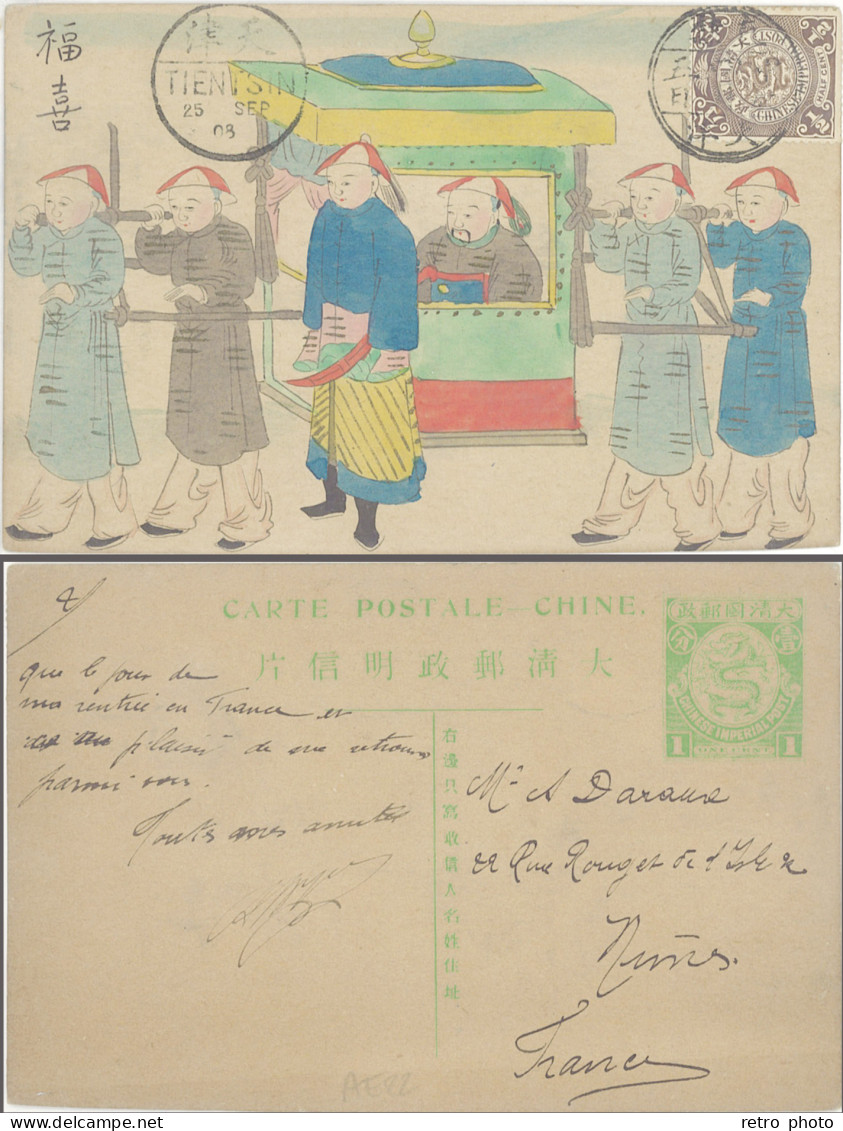 福喜
天津
TIENTSIN
25 SEP
08
CHINESE IMPERIAL POST
1/2
HALF CENT
1/2
CARTE POSTALE—CHINE.
片信明政郵清大
政郵國清大
壹
CHINESE IMPERIAL POST
1 ONE CENT 1
que le jour de
ma rentrée en France et
plaisir de me retrouver
parmi vous.
Toutes mes amitiés
右邊只寫收信人名姓住址
Mr A Daraux
22 Rue Rouget de l'Isle
Nîmes.
France
AE22
retro photo